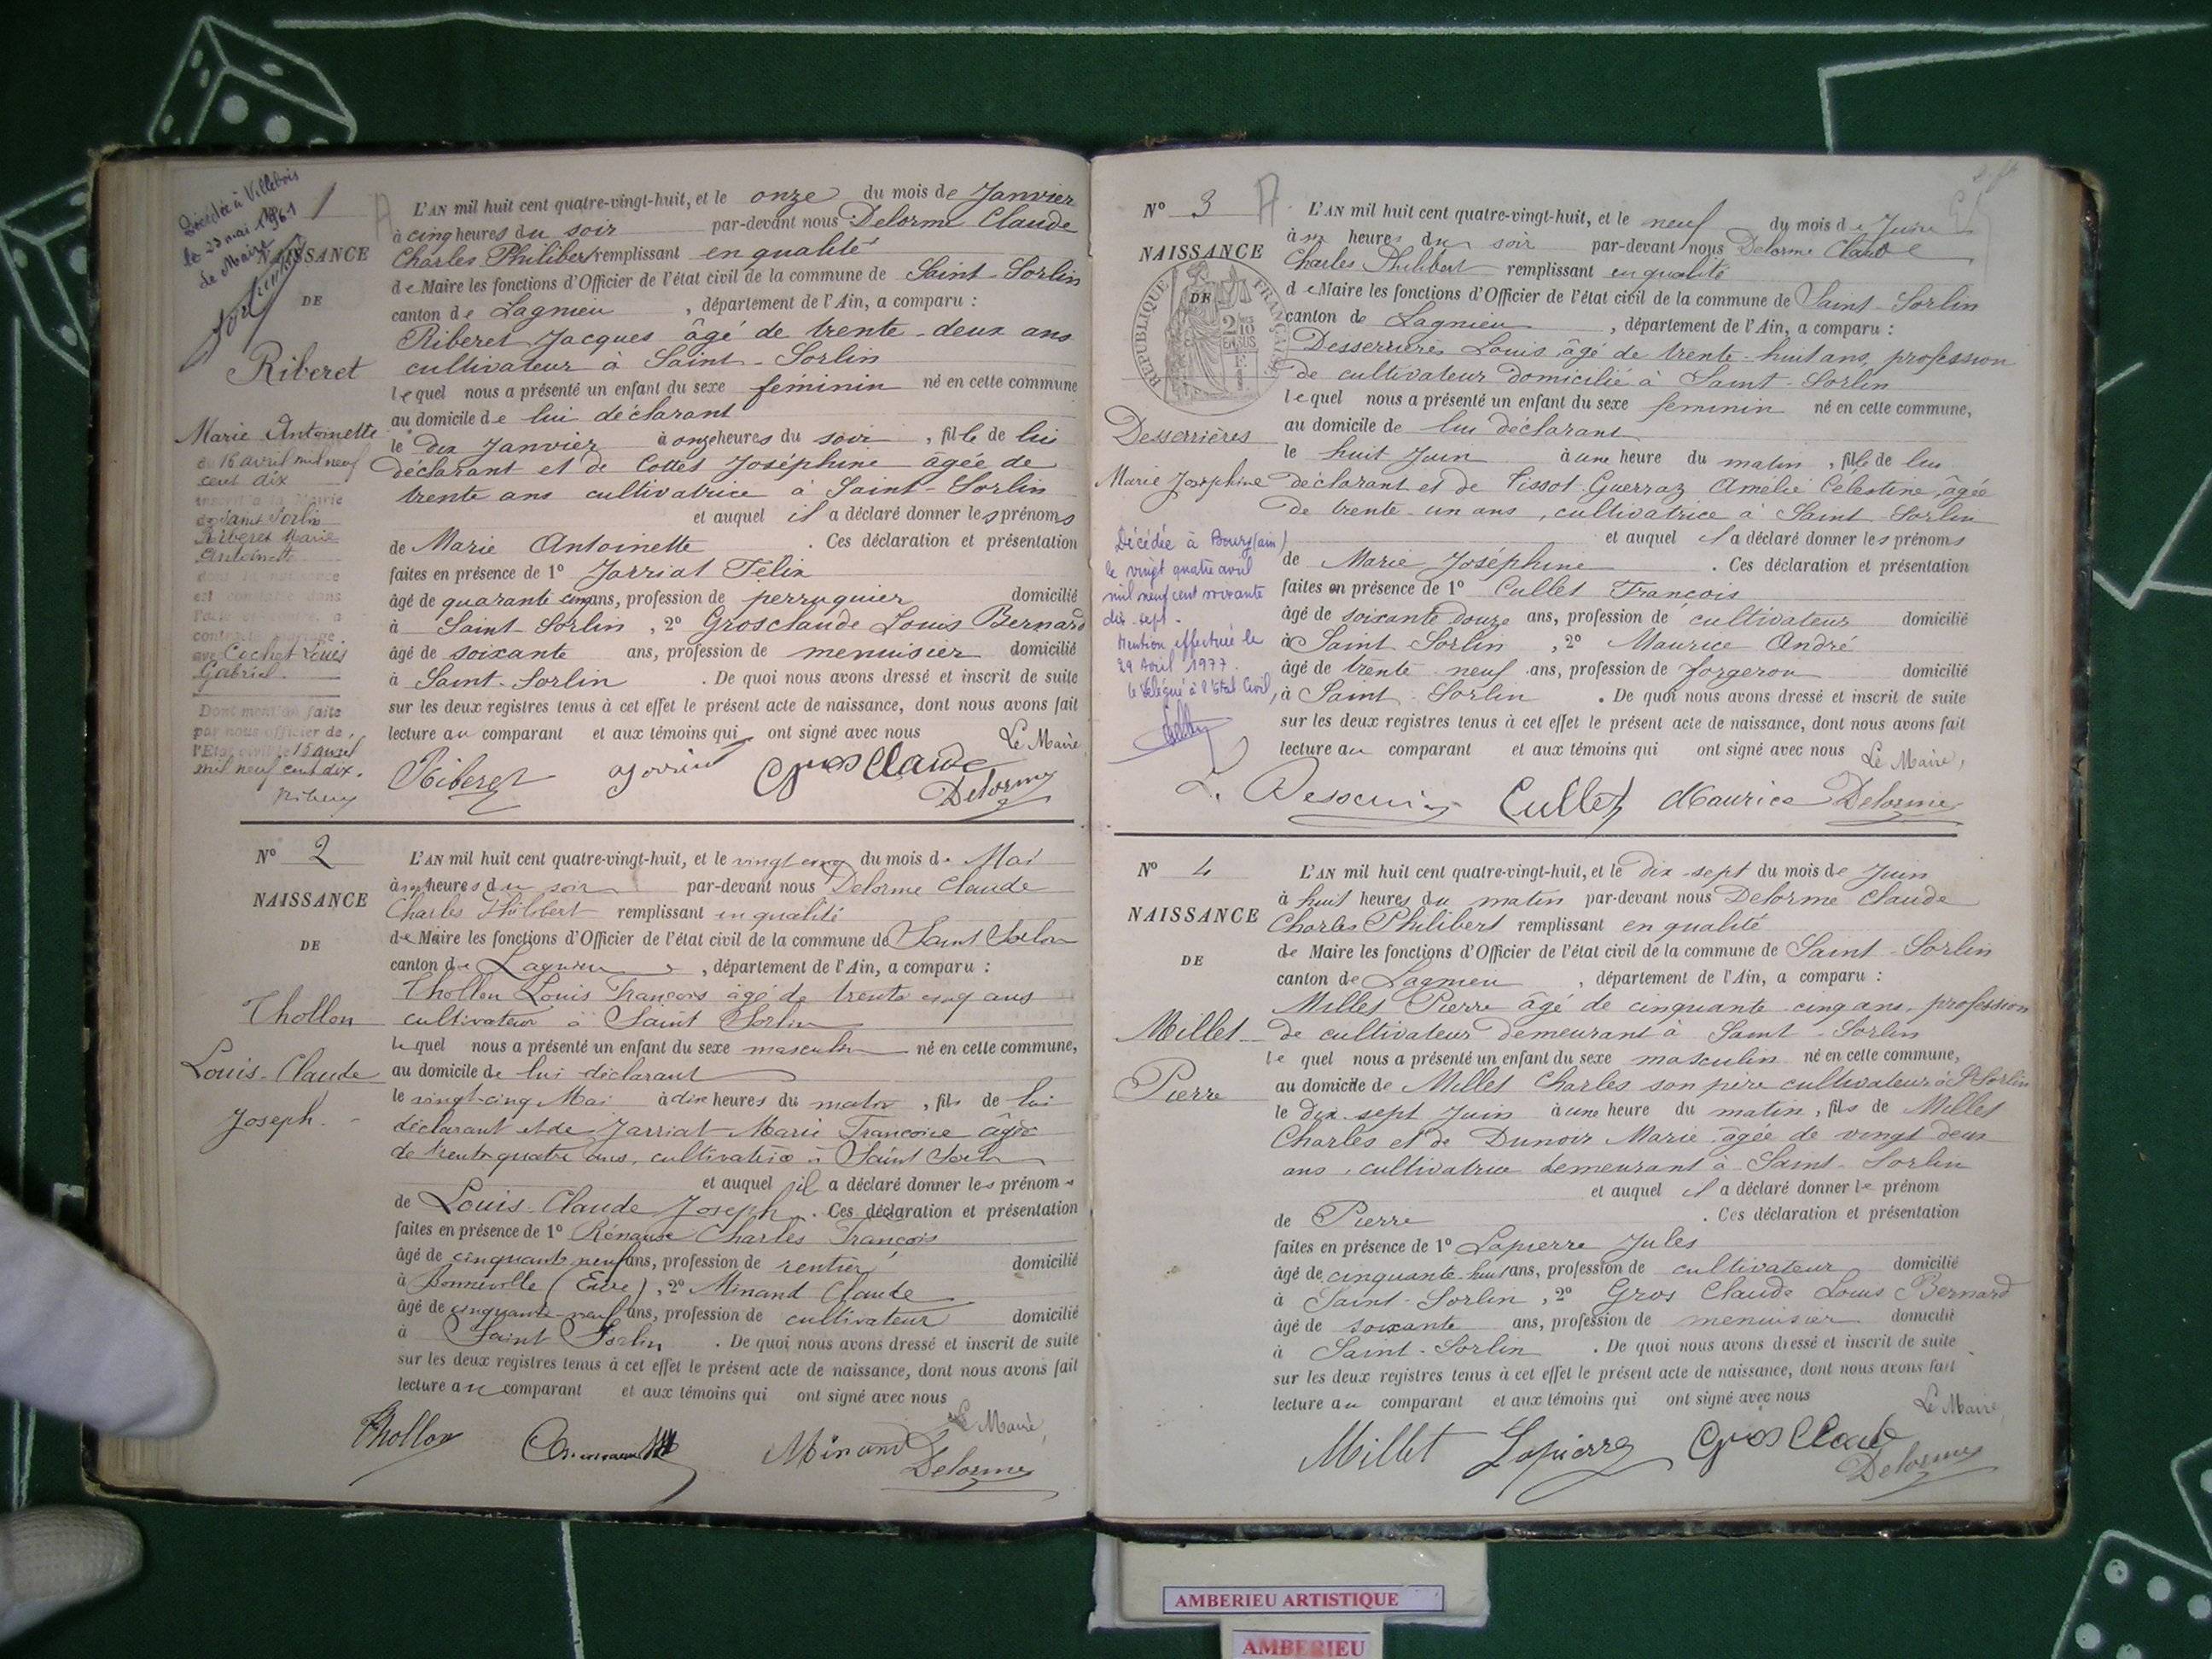 Décédée à Villebois
le 23 mai 1961
Le Maire
1
NAISSANCE
DE
Riberet
Marie Antoinette
16 avril mil neuf
cent dix
inscrit à la Mairie
de Saint Sorlin
Riberet Marie
Antoinette
dont la naissance
est constatée dans
l'acte ci-contre, a
contracté mariage
avec Cochet Louis
Gabriel.
Dont mention faite
par nous officier de
l'Etat civil le 15 avril
mil neuf cent dix.
L'AN mil huit cent quatre-vingt-huit, et le onze du mois de Janvier
à cinq heures du soir par-devant nous Delorme Claude
Charles Philibert remplissant en qualité
de Maire les fonctions d'Officier de l'état civil de la commune de Saint-Sorlin
canton de Lagnieu, département de l'Ain, a comparu :
Riberet Jacques âgé de trente-deux ans
cultivateur à Saint-Sorlin
lequel nous a présenté un enfant du sexe féminin né en cette commune
au domicile de lui déclarant
le dix Janvier à onze heures du soir, fille de lui
déclarant et de Cottet Joséphine âgée de
trente ans cultivatrice à Saint-Sorlin
et auquel il a déclaré donner les prénoms
de Marie Antoinette. Ces déclaration et présentation
faites en présence de 1º Jarriat Félix
âgé de quarante cinq ans, profession de perruquier domicilié
à Saint-Sorlin, 2º Grosclaude Louis Bernard
âgé de soixante ans, profession de menuisier domicilié
à Saint-Sorlin. De quoi nous avons dressé et inscrit de suite
sur les deux registres tenus à cet effet le présent acte de naissance, dont nous avons fait
lecture au comparant et aux témoins qui ont signé avec nous
Le Maire,
Riberet Jarriat Gros Claude
Delorme
Nº 2
NAISSANCE
DE
Thollon
Louis-Claude
Joseph.
L'AN mil huit cent quatre-vingt-huit, et le vingt cinq du mois de Mai
à heures du soir par-devant nous Delorme Claude
Charles Philibert remplissant en qualité
de Maire les fonctions d'Officier de l'état civil de la commune de Saint Sorlin
canton de Lagnieu, département de l'Ain, a comparu :
Thollon Louis François âgé de trente cinq ans
cultivateur à Saint Sorlin
lequel nous a présenté un enfant du sexe masculin né en cette commune,
au domicile de lui déclarant
le vingt-cinq Mai à dix heures du matin, fils de lui
déclarant et de Jarriat Marie Françoise âgée
de trente quatre ans, cultivatrice à Saint Sorlin
et auquel il a déclaré donner les prénoms
de Louis-Claude Joseph. Ces déclaration et présentation
faites en présence de 1º Charles François
âgé de cinquante neuf ans, profession de rentier domicilié
à Bonneville (Eure), 2º Minand Claude
âgé de cinquante-neuf ans, profession de cultivateur domicilié
à Saint Sorlin. De quoi nous avons dressé et inscrit de suite
sur les deux registres tenus à cet effet le présent acte de naissance, dont nous avons fait
lecture au comparant et aux témoins qui ont signé avec nous
Le Maire,
Thollon Minand Delorme
Nº 3
NAISSANCE
DE
RÉPUBLIQUE FRANÇAISE
2
Desserrières
Marie Joséphine
Décédée à Bourg (ain)
le vingt quatre avril
mil neuf cent soixante
dix-sept.
Mention effectuée le
29 Avril 1977.
le Délégué à l'Etat Civil,
L'AN mil huit cent quatre-vingt-huit, et le neuf du mois de Juin
à six heures du soir par-devant nous Delorme Claude
Charles Philibert remplissant en qualité
de Maire les fonctions d'Officier de l'état civil de la commune de Saint-Sorlin
canton de Lagnieu, département de l'Ain, a comparu :
Desserrières Louis, âgé de trente-huit ans, profession
de cultivateur domicilié à Saint-Sorlin
lequel nous a présenté un enfant du sexe féminin né en cette commune,
au domicile de lui déclarant
le huit Juin à une heure du matin, fille de lui
déclarant et de Tissot-Guerraz Amélie Célestine, âgée
de trente-un ans, cultivatrice à Saint-Sorlin
et auquel il a déclaré donner les prénoms
de Marie Joséphine. Ces déclaration et présentation
faites en présence de 1º Cullet François
âgé de soixante douze ans, profession de cultivateur domicilié
à Saint Sorlin, 2º Maurice André
âgé de trente-neuf ans, profession de forgeron domicilié
à Saint-Sorlin. De quoi nous avons dressé et inscrit de suite
sur les deux registres tenus à cet effet le présent acte de naissance, dont nous avons fait
lecture au comparant et aux témoins qui ont signé avec nous
Le Maire,
Cullet Maurice Delorme
Nº 4
NAISSANCE
DE
Millet
Pierre
L'AN mil huit cent quatre-vingt-huit, et le dix-sept du mois de Juin
à huit heures du matin par-devant nous Delorme Claude
Charles Philibert remplissant en qualité
de Maire les fonctions d'Officier de l'état civil de la commune de Saint-Sorlin
canton de Lagnieu, département de l'Ain, a comparu :
Millet Pierre âgé de cinquante-cinq ans, profession
de cultivateur demeurant à Saint-Sorlin
lequel nous a présenté un enfant du sexe masculin né en cette commune,
au domicile de Millet Charles son père cultivateur à St Sorlin
le dix-sept Juin à une heure du matin, fils de Millet
Charles et de Dunoir Marie âgée de vingt deux
ans, cultivatrice demeurant à Saint-Sorlin
et auquel il a déclaré donner le prénom
de Pierre. Ces déclaration et présentation
faites en présence de 1º Lapierre Jules
âgé de cinquante-huit ans, profession de cultivateur domicilié
à Saint-Sorlin, 2º Gros Claude Louis Bernard
âgé de soixante ans, profession de menuisier domicilié
à Saint-Sorlin. De quoi nous avons dressé et inscrit de suite
sur les deux registres tenus à cet effet le présent acte de naissance, dont nous avons fait
lecture au comparant et aux témoins qui ont signé avec nous
Le Maire,
Millet Lapierre Gros Claude
Delorme
AMBERIEU ARTISTIQUE
AMBERIEU